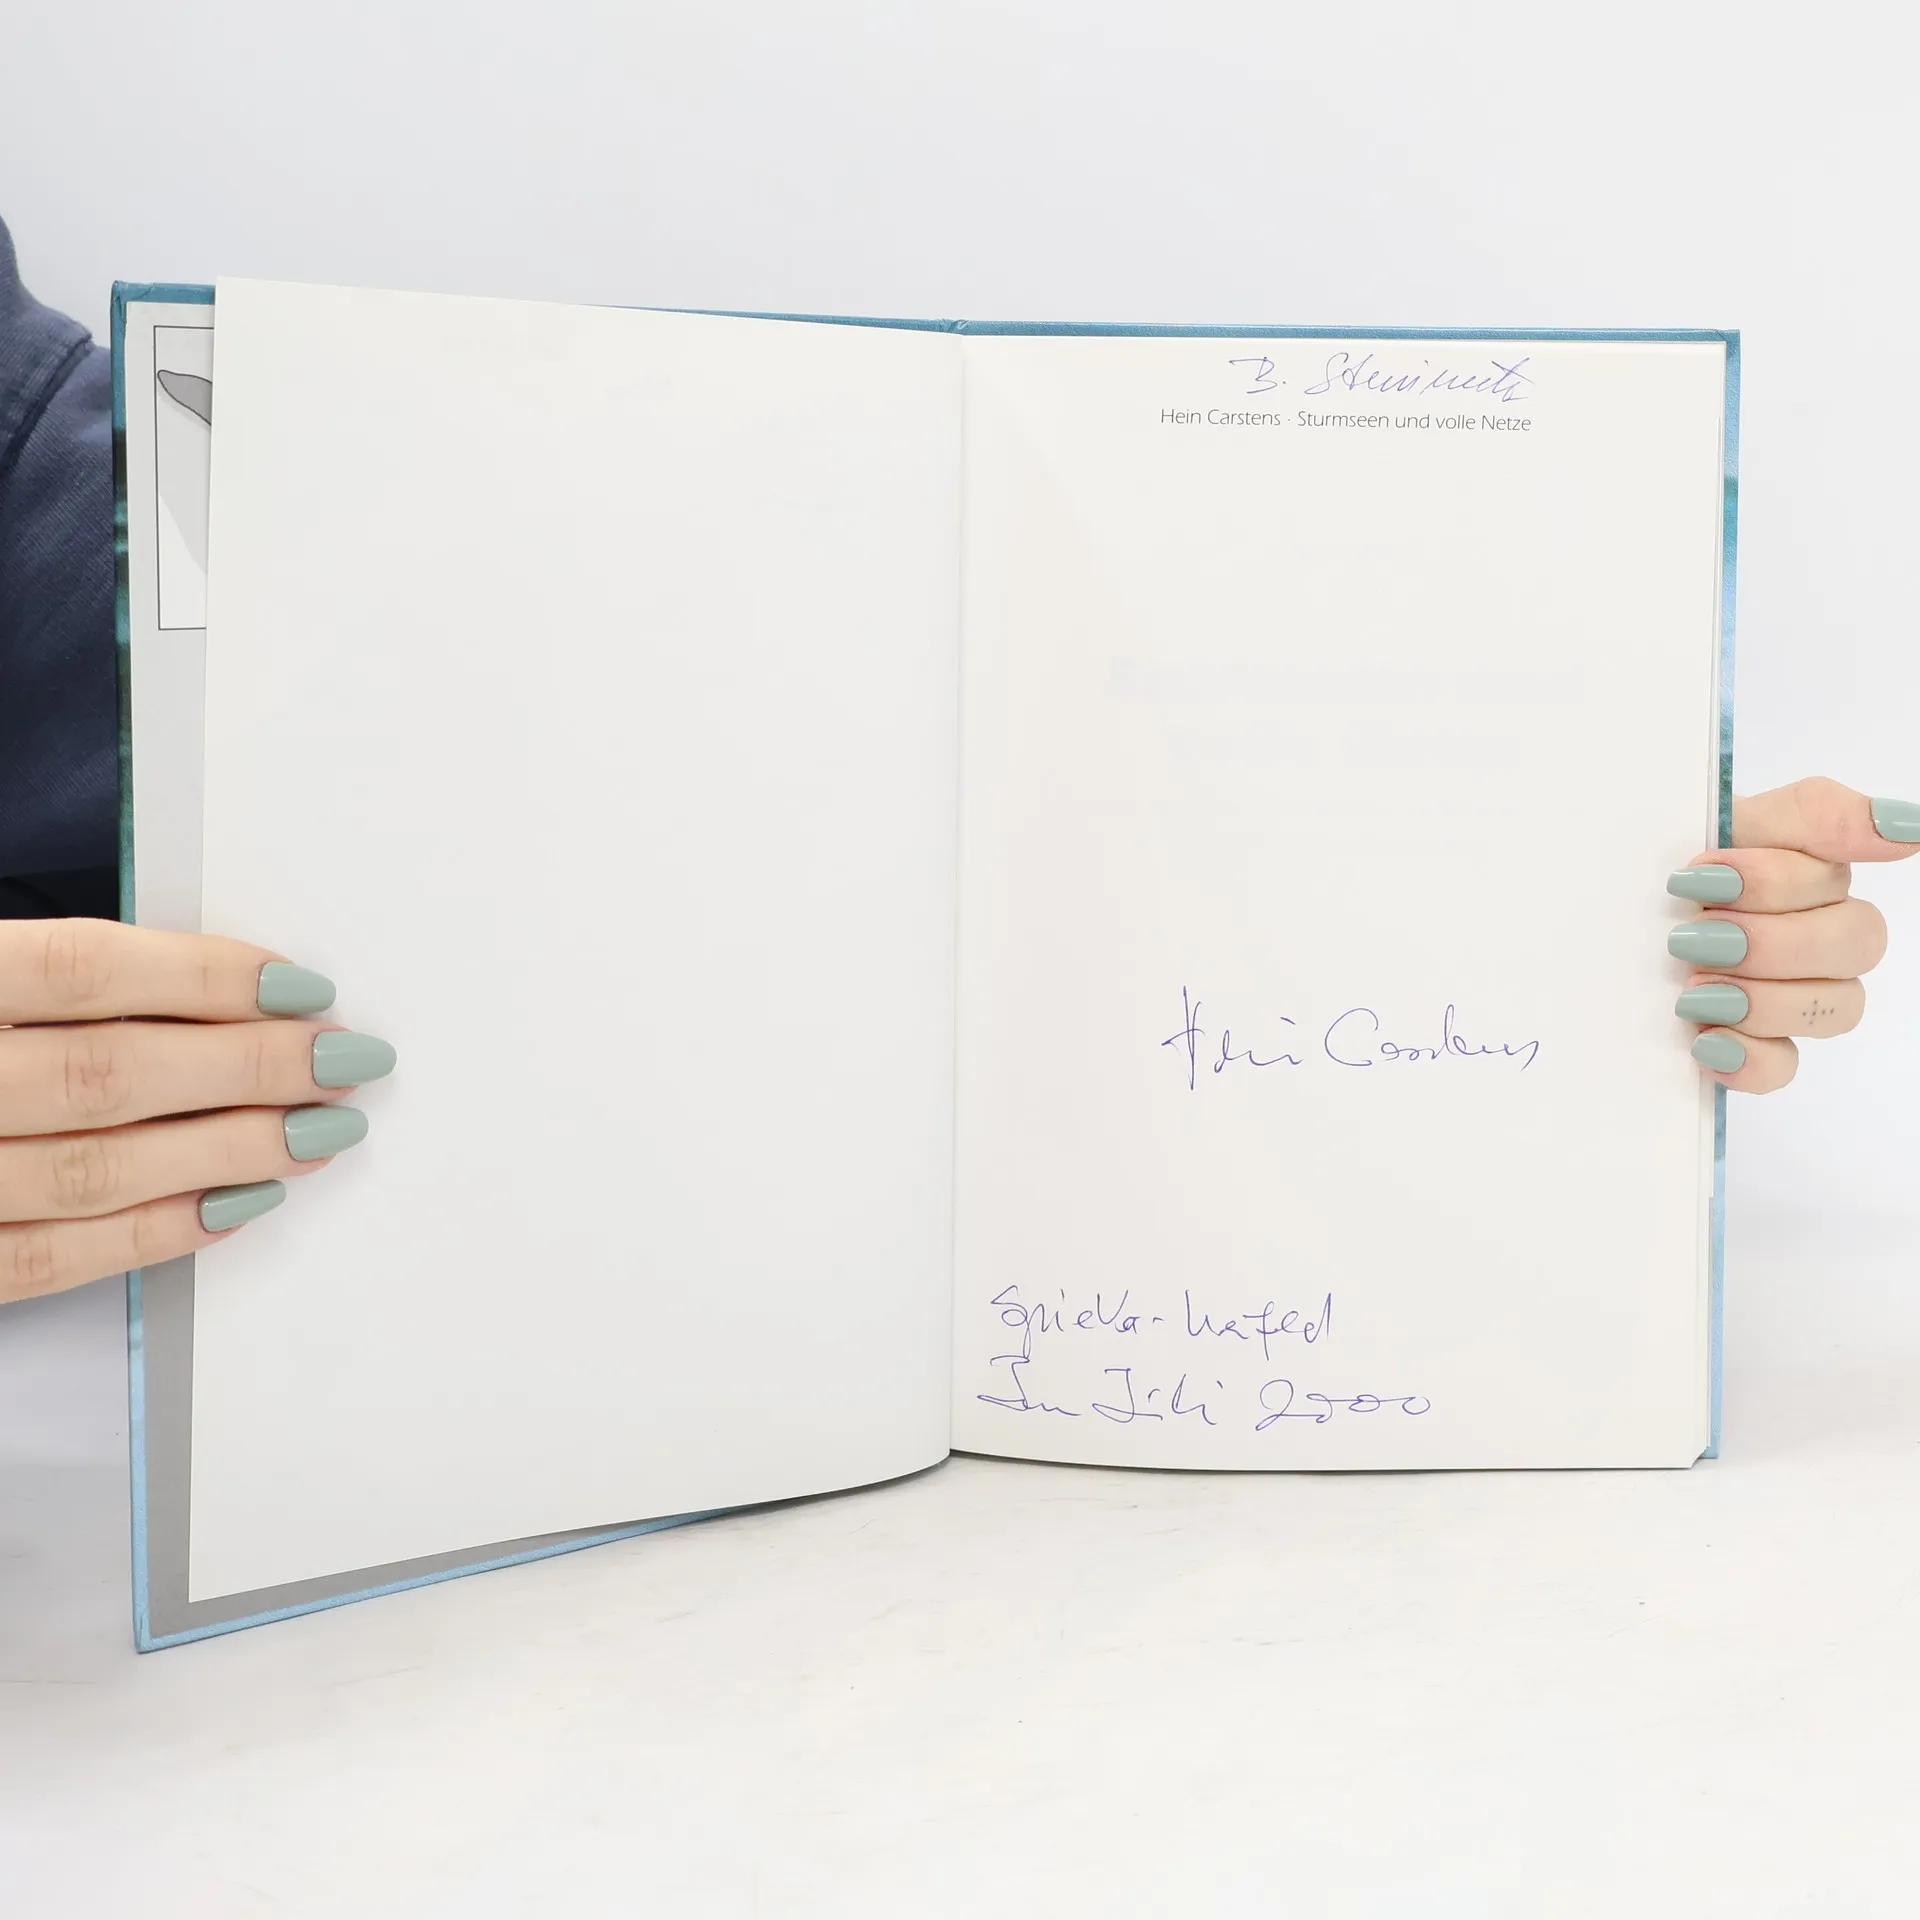 B. Steinmetz
Hein Carstens · Sturmseen und volle Netze
Hein Carstens
Spieka-
Im Juli 2000